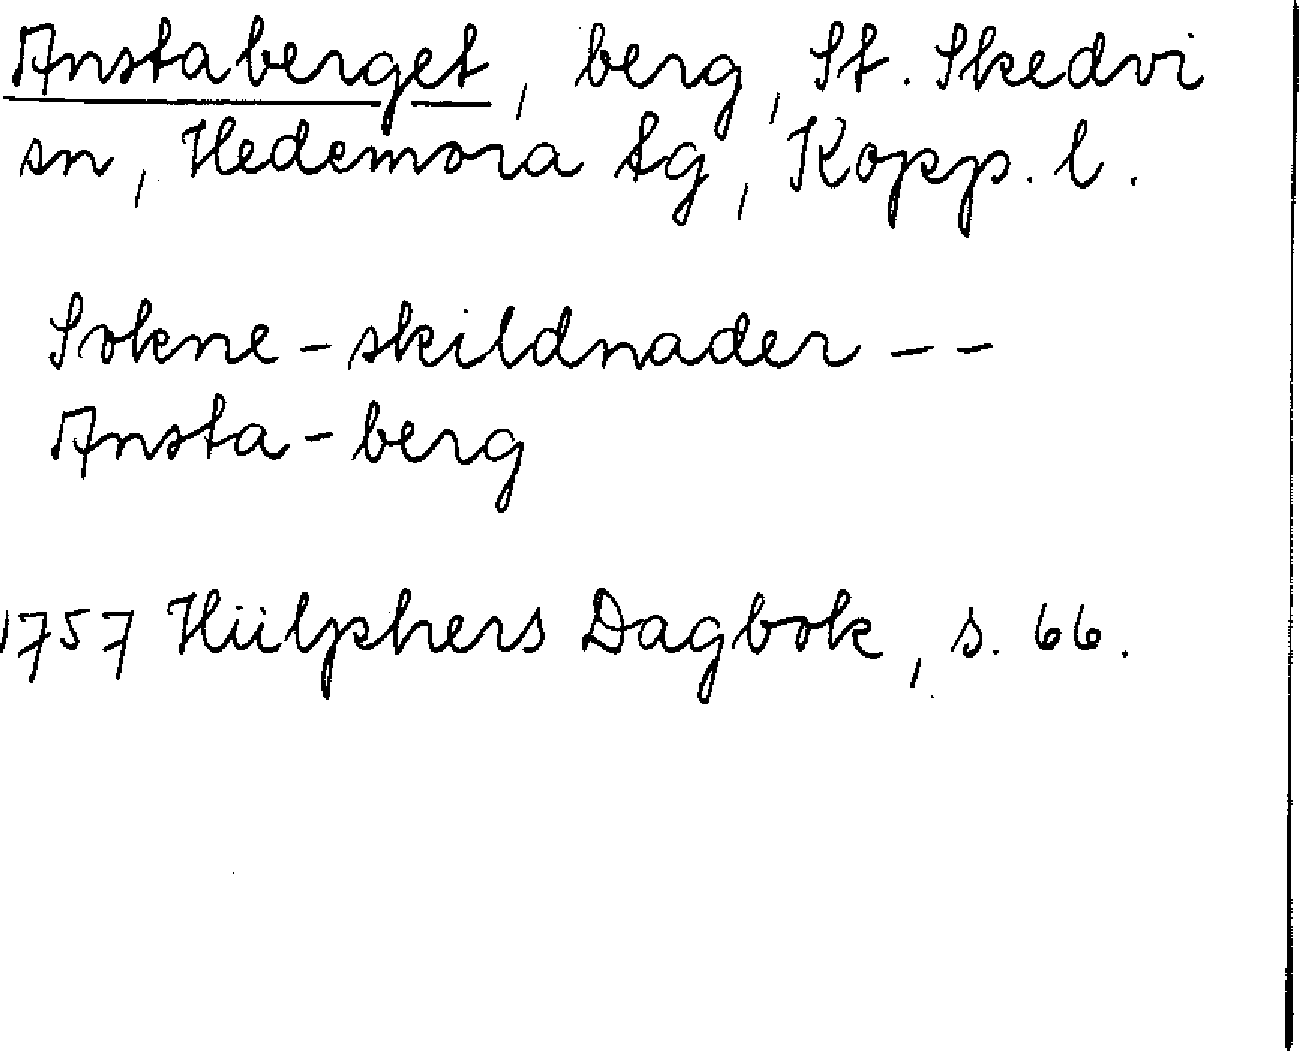 Anstaberget, berg, St. Skedvi
sn, Hedemora tg, Kopp. l.
Sokne-skildnader --
Ansta-berg
1757 Hülphers Dagbok, s. 66.